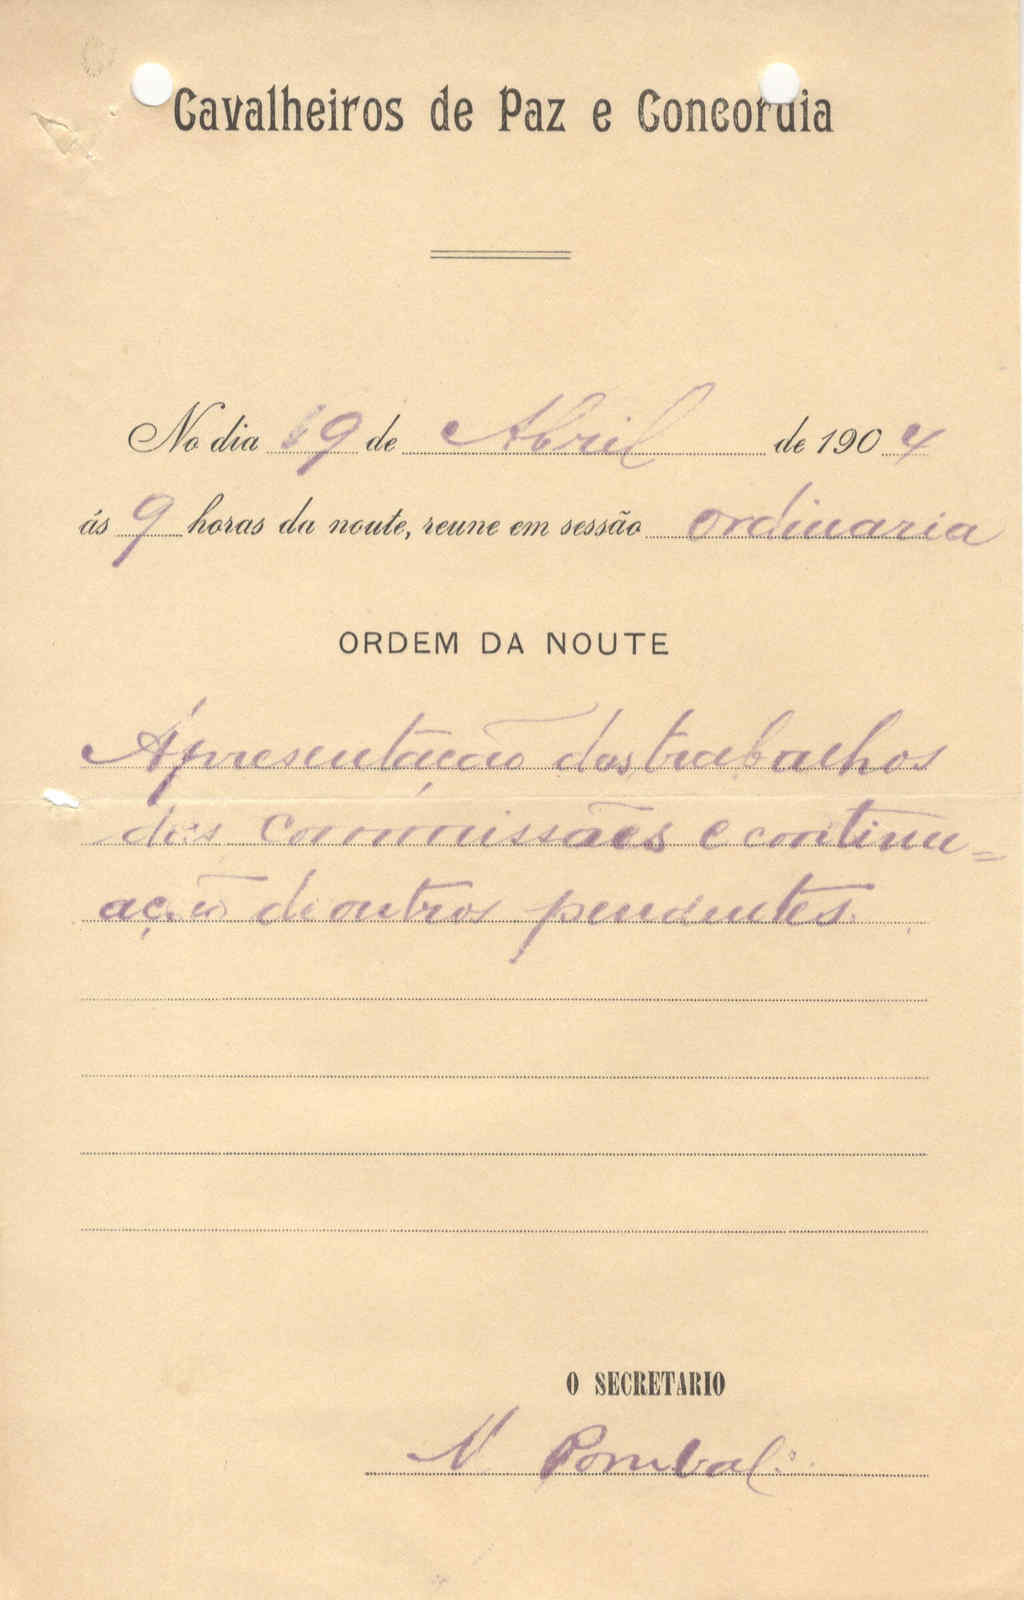 Cavalheiros de Paz e Concordia
No dia 19 de Abril de 1904
ás 9 horas da noute, reune em sessão ordinaria
ORDEM DA NOUTE
Apresentação dos trabalhos
das commissões e continu=
ação de outros pendentes.
O SECRETARIO
N. Pombal